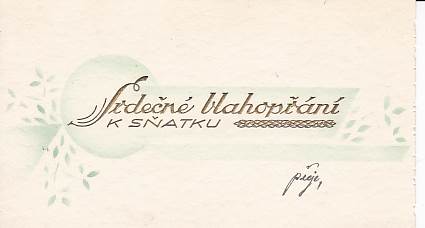 Srdečné blahopřání
K SŇATKU
přeje,